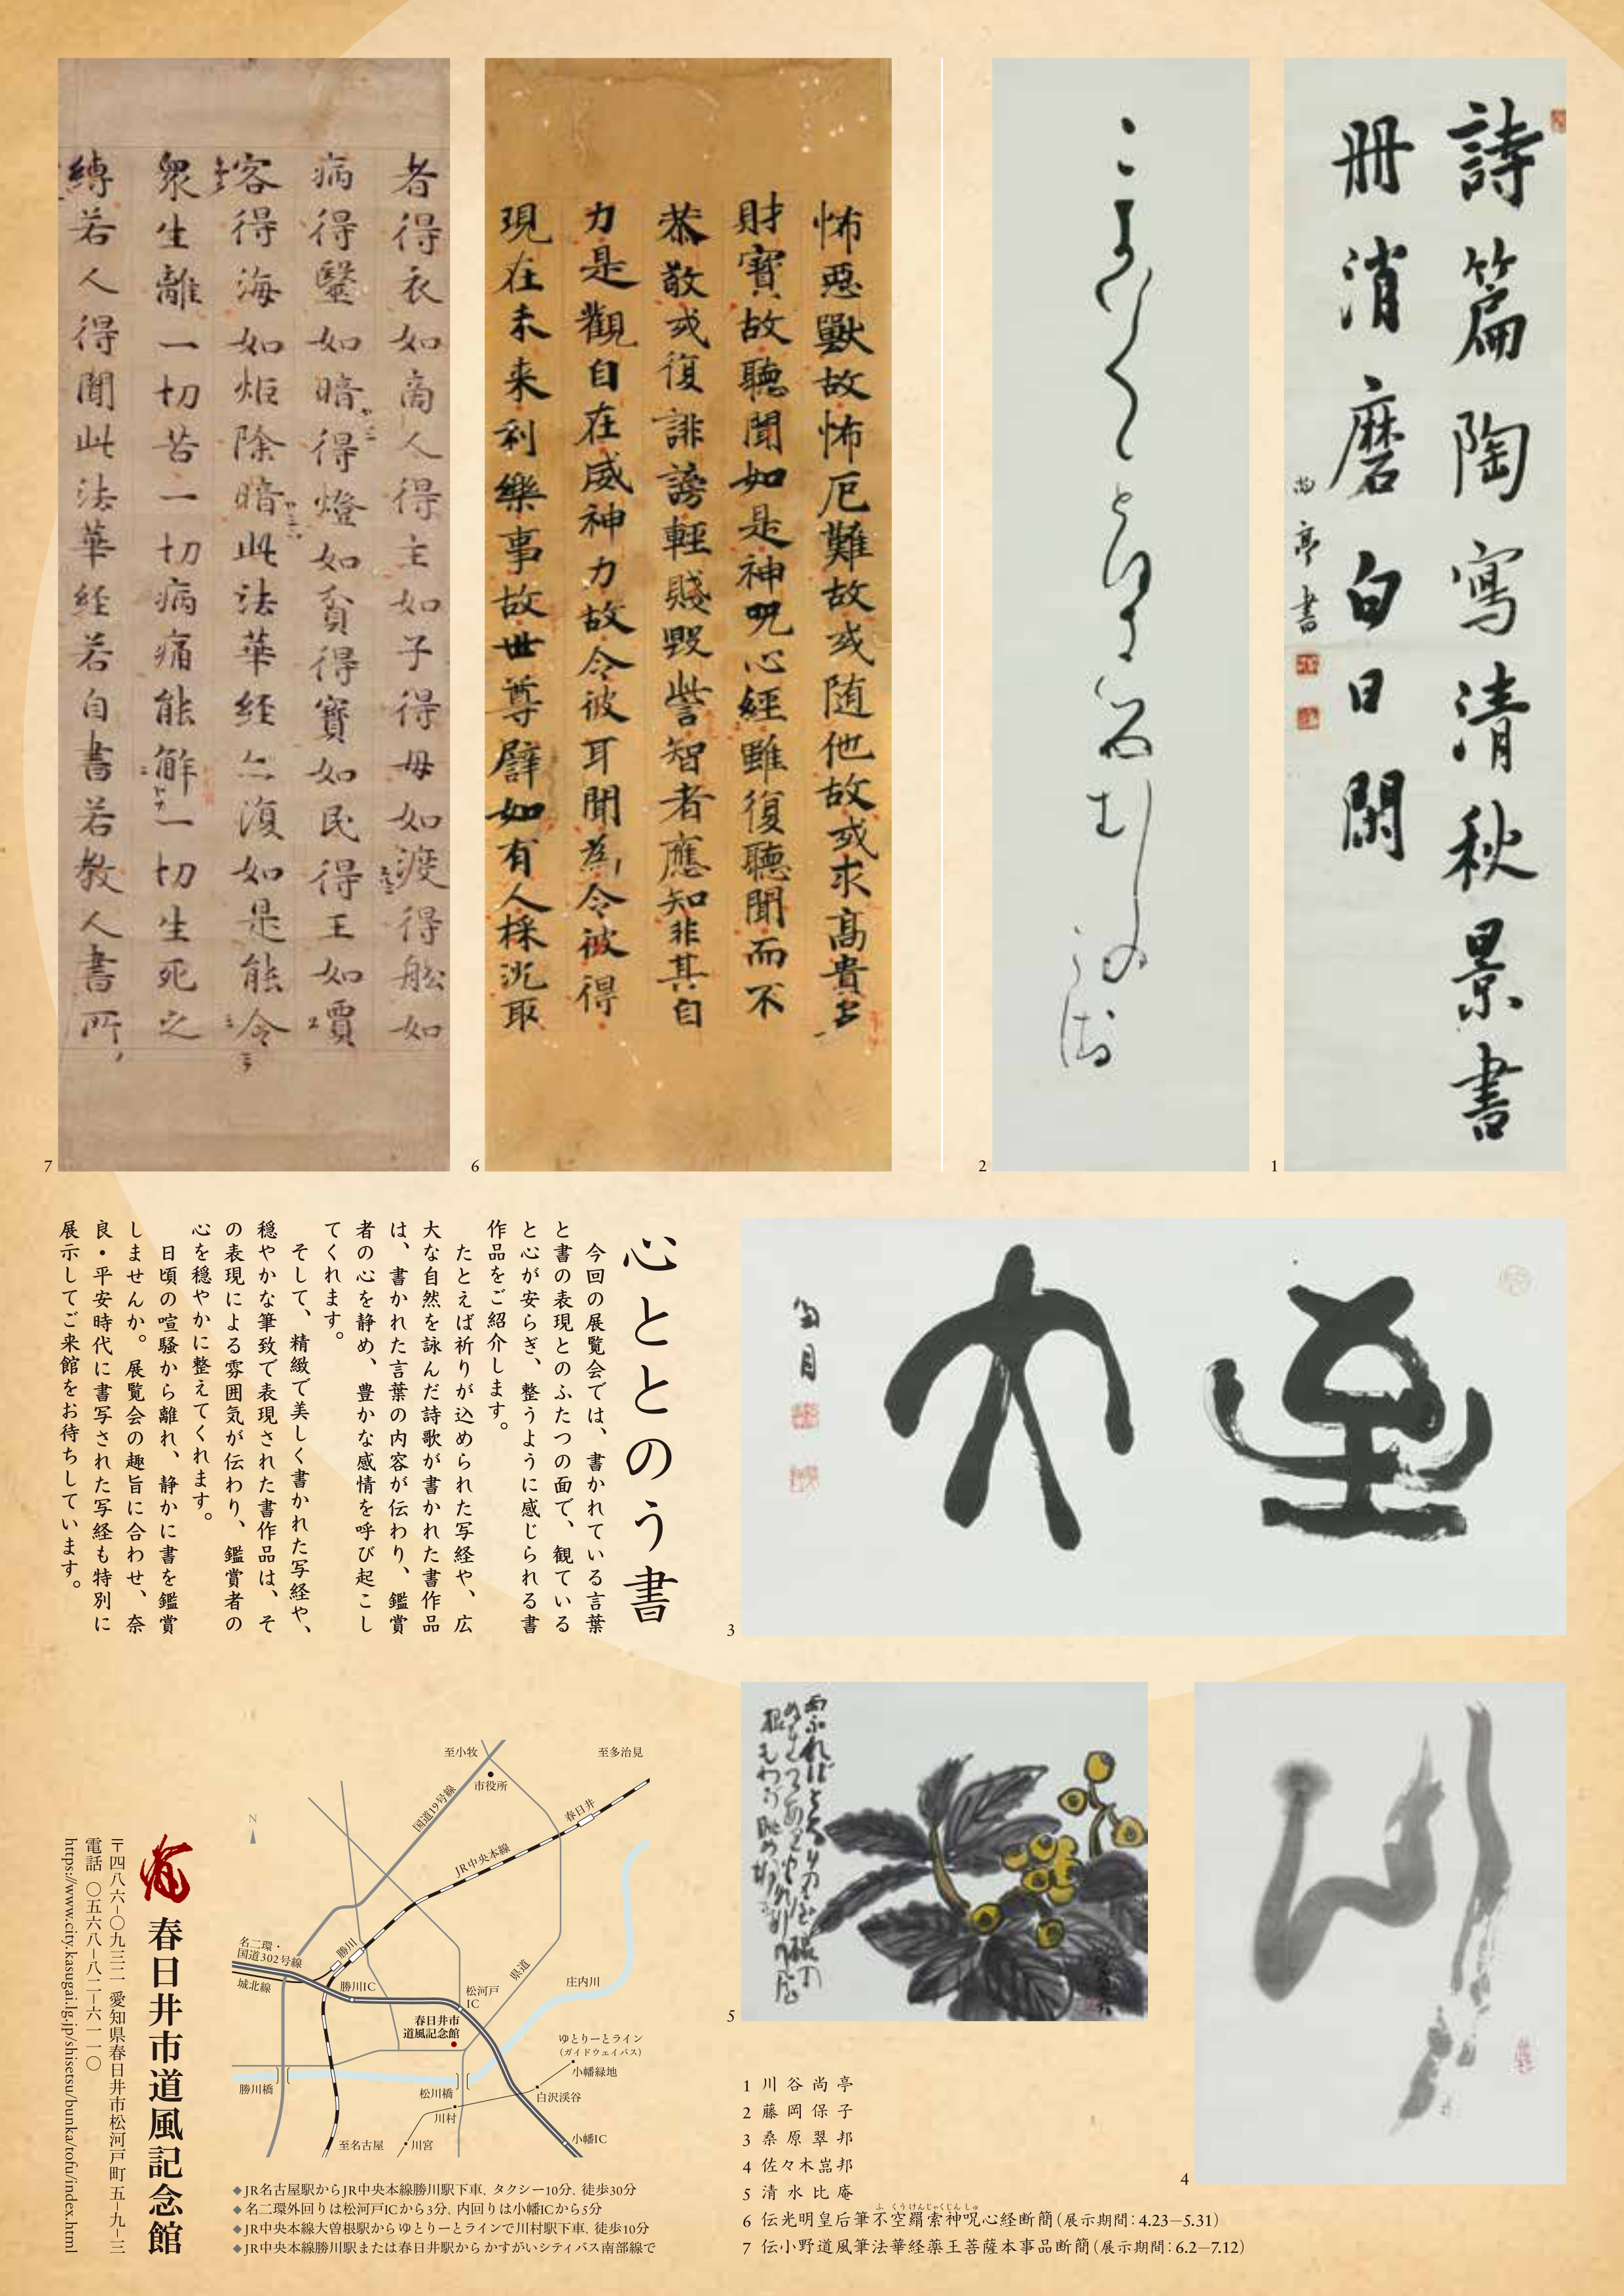 詩篇陶寫清秋景書
冊消磨白日閑
尚亭書
1
2
怖惡獸故怖厄難故或随他故或求高貴多
財寶故聽聞如是神呪心經雖復聽聞而不
恭敬或復誹謗輕賤毀訾智者應知非其自
力是觀自在威神力故令彼耳聞為令彼得
現在未来利樂事故世尊譬如有人採沈取
6
者得衣如商人得主如子得母如渡得舩如
病得醫如暗得燈如貧得寶如民得王如賈
客得海如炬除暗此法華経亦復如是能令
衆生離一切苦一切病痛能解一切生死之
縛若人得聞此法華経若自書若教人書所
7
3
4
5
心ととのう書
今回の展覧会では、書かれている言葉
と書の表現とのふたつの面で、観ている
と心が安らぎ、整うように感じられる書
作品をご紹介します。
たとえば祈りが込められた写経や、広
大な自然を詠んだ詩歌が書かれた書作品
は、書かれた言葉の内容が伝わり、鑑賞
者の心を静め、豊かな感情を呼び起こし
てくれます。
そして、精緻で美しく書かれた写経や、
穏やかな筆致で表現された書作品は、そ
の表現による雰囲気が伝わり、鑑賞者の
心を穏やかに整えてくれます。
日頃の喧騒から離れ、静かに書を鑑賞
しませんか。展覧会の趣旨に合わせ、奈
良・平安時代に書写された写経も特別に
展示してご来館をお待ちしています。
1 川谷尚亭
2 藤岡保子
3 桑原翠邦
4 佐々木嵓邦
5 清水比庵
6 伝光明皇后筆不空羂索神呪心経断簡(展示期間:4.23–5.31)
ふくうけんじゃくじんしゅ
7 伝小野道風筆法華経薬王菩薩本事品断簡(展示期間:6.2–7.12)
至小牧
至多治見
市役所
国道19号線
春日井
JR中央本線
N
名二環・
国道302号線
勝川
城北線
勝川IC
松河戸
IC
県道
庄内川
春日井市
道風記念館
ゆとりーとライン
(ガイドウェイバス)
小幡緑地
勝川橋
松川橋
白沢渓谷
川村
至名古屋
川宮
小幡IC
◆JR名古屋駅からJR中央本線勝川駅下車、タクシー10分、徒歩30分
◆名二環外回りは松河戸ICから3分、内回りは小幡ICから5分
◆JR中央本線大曽根駅からゆとりーとラインで川村駅下車、徒歩10分
◆JR中央本線勝川駅または春日井駅からかすがいシティバス南部線で
春日井市道風記念館
〒四八六–〇九三二 愛知県春日井市松河戸町五–九–三
電話 〇五六八–八二–六一一〇
https://www.city.kasugai.lg.jp/shisetsu/bunka/tofu/index.html